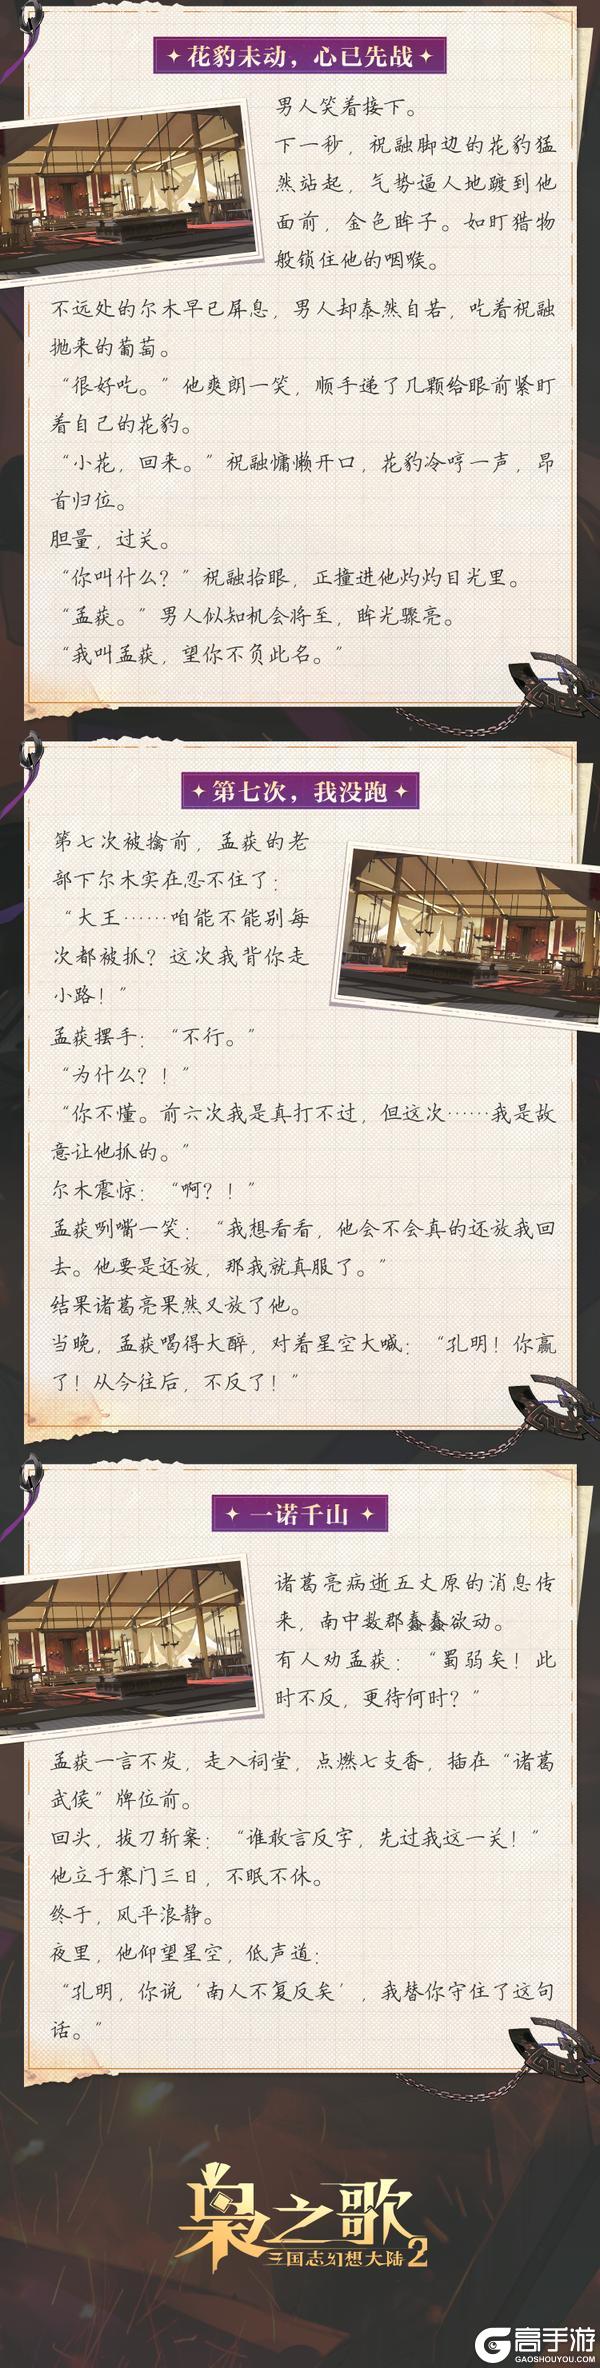 花豹未动，心已先战
男人笑着接下。
下一秒，祝融脚边的花豹猛
然站起，气势逼人地踱到他
面前，金色眸子。如盯猎物
般锁住他的咽喉。
不远处的尔木早已屏息，男人却泰然自若，吃着祝融
抛来的葡萄。
“很好吃。”他爽朗一笑，顺手递了几颗给眼前紧盯
着自己的花豹。
“小花，回来。”祝融慵懒开口，花豹冷哼一声，昂
首归位。
胆量，过关。
“你叫什么？”祝融抬眼，正撞进他灼灼目光里。
“孟获。”男人似知机会将至，眸光骤亮。
“我叫孟获，望你不负此名。”
第七次，我没跑
第七次被擒前，孟获的老
部下尔木实在忍不住了：
“大王……咱能不能别每
次都被抓？这次我背你走
小路！”
孟获摆手：“不行。”
“为什么？！”
“你不懂。前六次我是真打不过，但这次……我是故
意让他抓的。”
尔木震惊：“啊？！”
孟获咧嘴一笑：“我想看看，他会不会真的还放我回
去。他要是还放，那我就真服了。”
结果诸葛亮果然又放了他。
当晚，孟获喝得大醉，对着星空大喊：“孔明！你赢
了！从今往后，不反了！”
一诺千山
诸葛亮病逝五丈原的消息传
来，南中数郡蠢蠢欲动。
有人劝孟获：“蜀弱矣！此
时不反，更待何时？”
孟获一言不发，走入祠堂，点燃七支香，插在“诸葛
武侯”牌位前。
回头，拔刀斩案：“谁敢言反字，先过我这一关！”
他立于寨门三日，不眠不休。
终于，风平浪静。
夜里，他仰望星空，低声道：
“孔明，你说‘南人不复反矣’，我替你守住了这句
话。”
枭之歌
三国志幻想大陆2
高手游
GAOSHOUYOU.COM